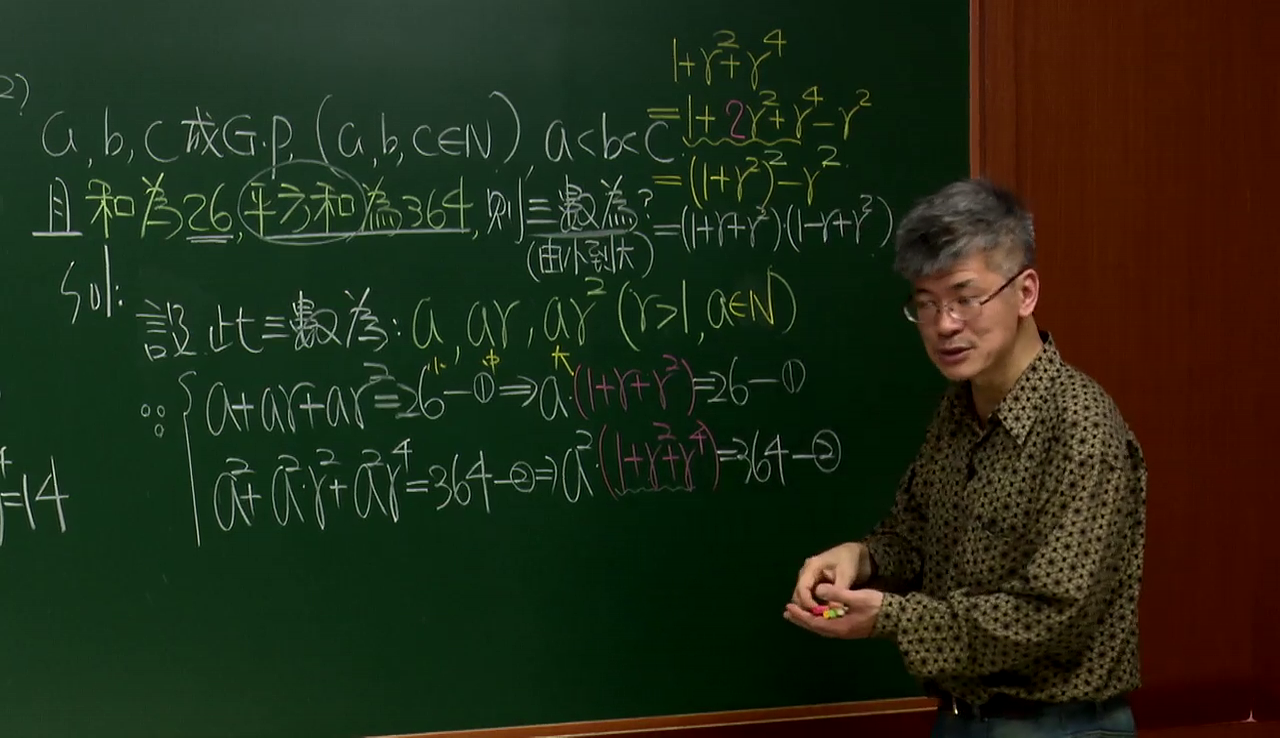 2)
a, b, c 成G.P. (a,b,c∈N), a<b<c
且和為26,平方和為364,則三數為?
(由小到大)
1+r²+r⁴
=1+2r²+r⁴-r²
=(1+r²)²-r²
=(1+r+r²)(1-r+r²)
Sol:
設此三數為:a, ar, ar² (r>1, a∈N)
小 中 大
∵ { a+ar+ar²=26-① ⇒ a·(1+r+r²)=26-①
a²+a²·r²+a²r⁴=364-② ⇒ a²·(1+r²+r⁴)=364-②
=14